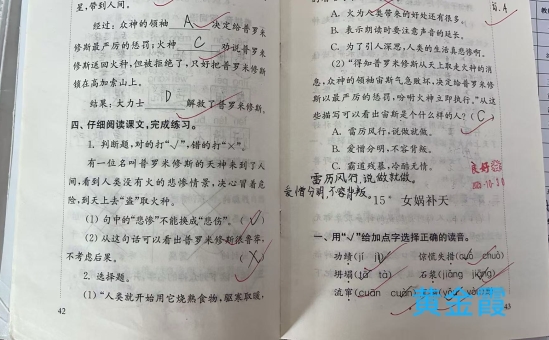 星,带到人间。
经过:众神的领袖 A 决定给普罗米
修斯最严厉的惩罚;火神 C 劝说普罗米
修斯送回火种,但被拒绝了,只好把普罗米修斯
锁在高加索山上。
结果:大力士 D 解救了普罗米修斯。
四、仔细阅读课文,完成练习。
1. 判断题,对的打“√”,错的打“×”。
有一位名叫普罗米修斯的天神来到了人
间,看到人类没有火的悲惨情景,决心冒着危
险,到天上去“盗”取火种。
(1) 句中的“悲惨”不能换成“悲伤”。 (√)
(2) 从这句话可以看出普罗米修斯很鲁莽,
不考虑后果。 (×)
2. 选择题。
(1)“人类就开始用它烧熟食物,驱寒取暖,
42
A. 火为人类带来的好处还有很多。
B. 表示朗读时要注意声音的延长。
C. 为了引人深思,人类的生活真悲惨啊。
(2)“得知普罗米修斯从天上取走火种的消
息,众神的领袖宙斯气急败坏,决定给普罗米修
斯以最严厉的惩罚,吩咐火神立即执行。”从这
些描写可以看出宙斯是个什么样的人? (C)
A. 雷厉风行,说做就做。
B. 爱憎分明,不容背叛。
C. 霸道残暴,冷酷无情。
雷厉风行,说做就做。
爱憎分明,不容背叛。
15* 女娲补天
一、用“√”给加点字选择正确的读音。
功绩(jì jī) 惊慌失措(cuò chuò)
坍塌(tā tà) 石浆(jiāng jiǎng)
43
黄金霞